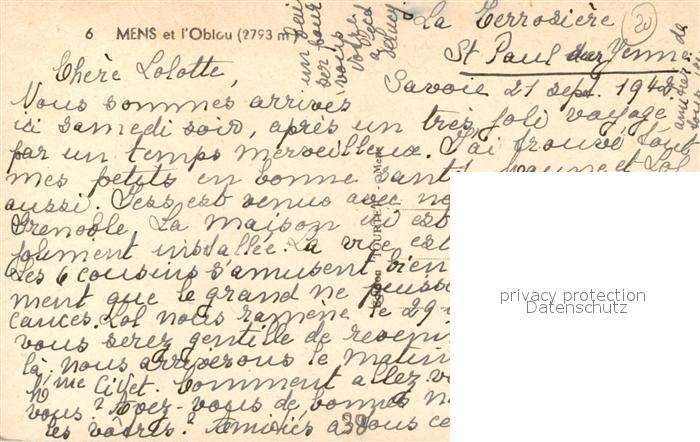 6 MENS et l'Obiou (2793 m)
La Terrosière
20
St Paul sur Yenne
Savoie 21 sept. 1948
Chère Lolotte,
Nous sommes arrivés
ici samedi soir, après un très joli voyage
par un temps merveilleux. J'ai trouvé tous
mes petits en bonne santé et Lol
aussi. est venue avec no
Grenoble. La maison ici est
joliment installée. La vie est
Les 6 cousins s'amusent bien
ment que le grand ne puisse
cances. Lol nous ramène le 29
vous serez gentille de reveni
là. nous arriverons le matin
Mme Civet. Comment allez vo
vous? Avez-vous de bonnes n
les vôtres? Amitiés à vous
38
TOURTET - Mens
privacy protection
Datenschutz